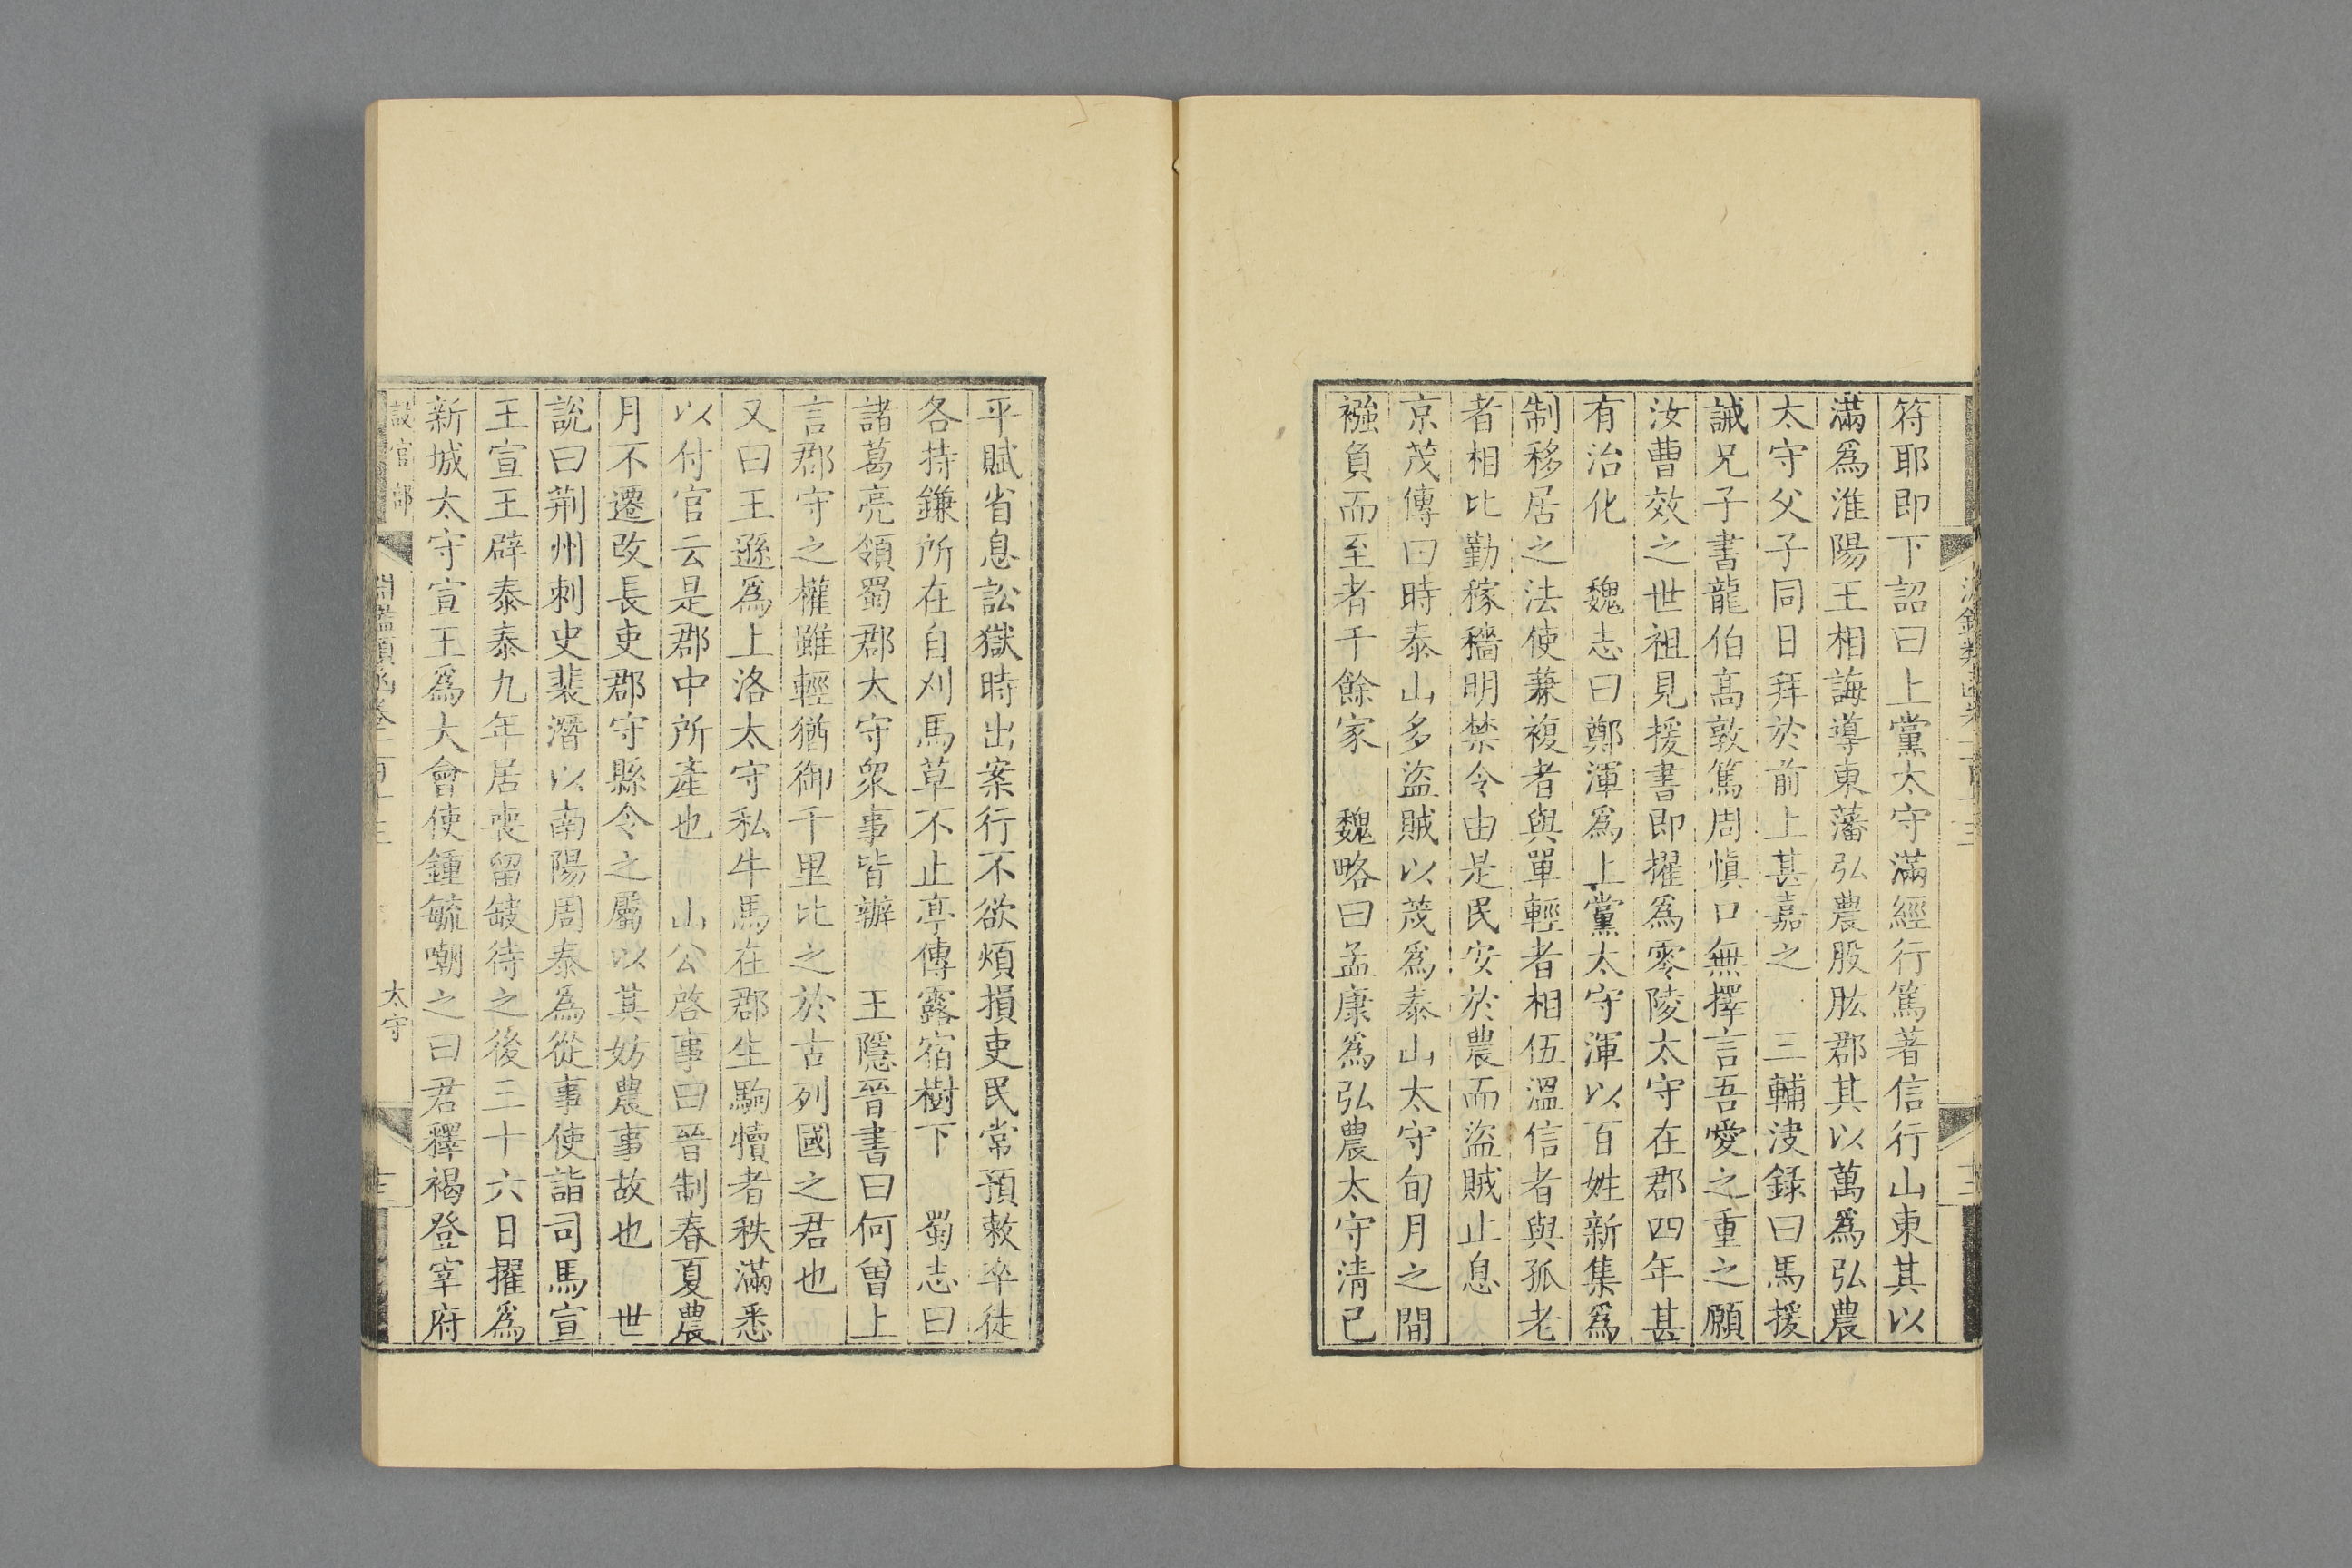 符耶即下詔曰上黨太守滿經行篤著信行山東其以
滿爲淮陽王相誨導東藩弘農股肱郡其以萬爲弘農
太守父子同日拜於前上甚嘉之　三輔決錄曰馬援
誡兄子書龍伯高敦篤周慎口無擇言吾愛之重之願
汝曹效之世祖見援書即擢爲零陵太守在郡四年甚
有治化　魏志曰鄭渾爲上黨太守渾以百姓新集爲
制移居之法使兼複者與單輕者相伍溫信者與孤老
者相比勤稼穡明禁令由是民安於農而盜賊止息
京茂傳曰時泰山多盜賊以茂爲泰山太守旬月之間
襁負而至者千餘家　魏略曰孟康爲弘農太守清已
平賦省息訟獄時出案行不欲煩損吏民常預敕卒徒
各持鎌所在自刈馬草不止亭傳露宿樹下　蜀志曰
諸葛亮領蜀郡太守衆事皆辦　王隱晉書曰何曾上
言郡守之權雖輕猶御千里比之於古列國之君也
又曰王遜爲上洛太守私牛馬在郡生駒犢者秩滿悉
以付官云是郡中所產也　山公啓事曰晉制春夏農
月不遷改長吏郡守縣令之屬以其妨農事故也　世
說曰荆州刺史裴潛以南陽周泰爲從事使詣司馬宣
王宣王辟泰泰九年居喪留缺待之後三十六日擢爲
新城太守宣王爲大會使鍾毓嘲之曰君釋褐登宰府
設官部　淵鑑類函卷一百十三　太守